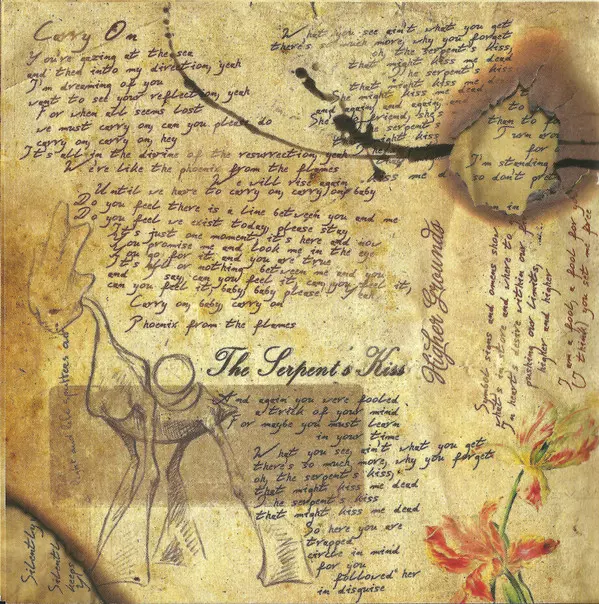 Carry On
You're gazing at the sea
and then into my direction, yeah
I'm dreaming of you
want to see your reflection, yeah
For when all seems lost
we must carry on, can you please do
carry on, carry on, hey
It's all in the divine of the resurrection, yeah
We're like the phoenix from the flames
We will rise again
Until we have to carry on, carry on baby
Do you feel there is a line between you and me
Do you feel we exist today, please stay
It's just one moment, it's here and now
You promise me and look me in the eye
You go for it, and you are true
It's all or nothing between me and you
and I say, can you feel it, can you feel it,
can you feel it, baby, baby please
Carry on, baby, carry on
Phoenix from the flames
What you see ain't what you get
there's so much more, why you forget
oh, the serpent's kiss,
that might kiss me dead
The serpent's kiss
that might kiss me dead
She might kiss me dead
and again, and again, and
She's friend, she's
the serpent's
that might kiss
to
them to
Turn arou
for
I'm standing
so don't pre
Higher Grounds
Symbol signs and omens show
what's in store and where to
In heart's desire within our
pushing our limits,
higher and higher
I am a fool, a fool for
you sit me free
The Serpent's Kiss
And again you were fooled
a trick of your mind
For maybe you must learn
in your time
What you see, ain't what you get
there's so much more, why you forget
oh, the serpent's kiss,
that might kiss me dead
The serpent's kiss
that might kiss me dead
So here you are
trapped
circle in mind
for you
followed her
in disguise
Silently
Silentl
keeps